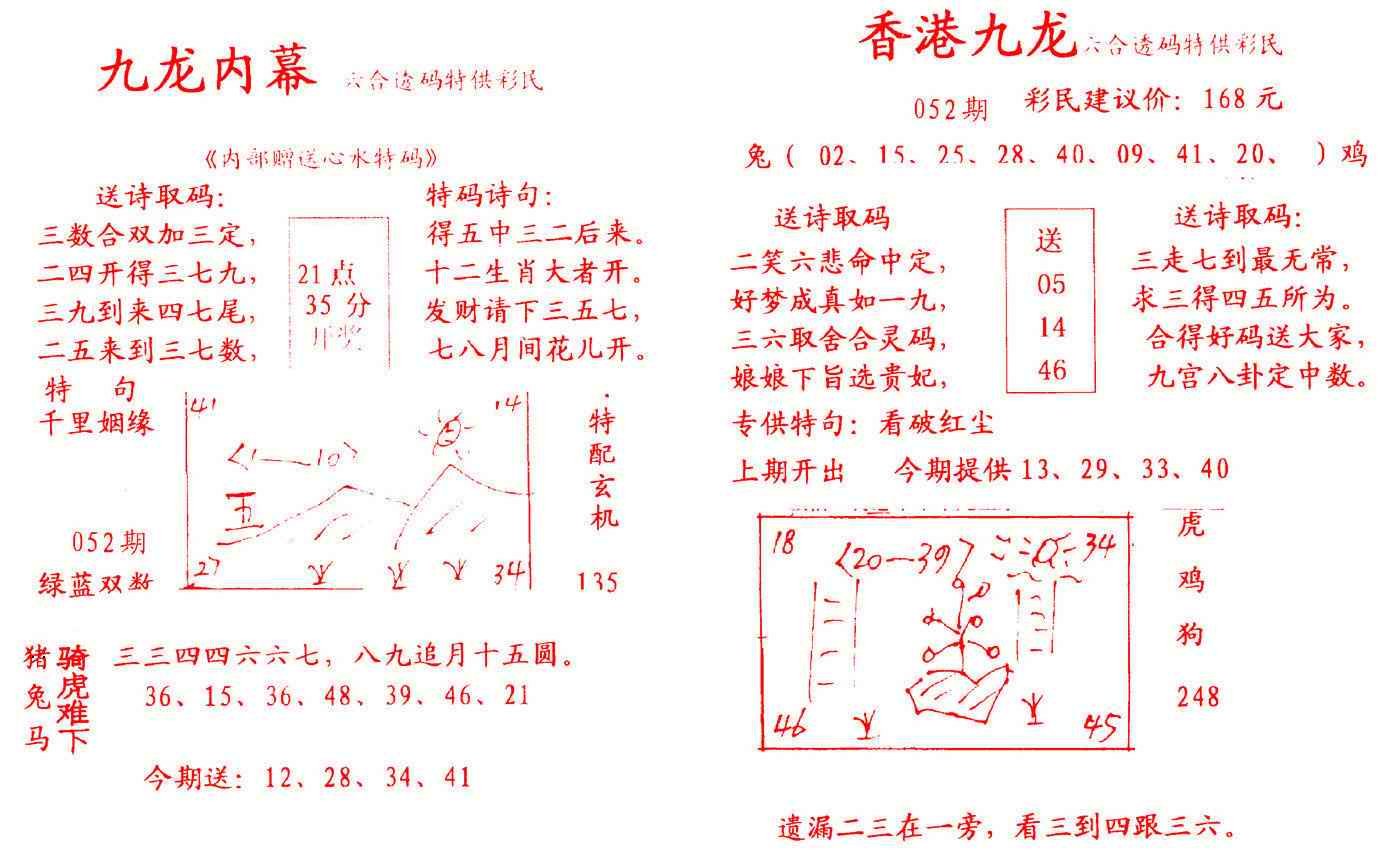 九龙内幕 六合透码特供彩民
《内部赠送心水特码》
送诗取码：
三数合双加三定，
二四开得三七九，
三九到来四七尾，
二五来到三七数，
21点
35 分
开奖
特码诗句：
得五中三二后来。
十二生肖大者开。
发财请下三五七，
七八月间花儿开。
特 句
千里姻缘
052期
绿蓝双数
41 14
〈1—10〉
五
27 34
特配玄机
135
猪兔马
骑虎难下
三三四四六六七，八九追月十五圆。
36、15、36、48、39、46、21
今期送：12、28、34、41
香港九龙 六合透码特供彩民
052期 彩民建议价：168元
兔（ 02、15、25、28、40、09、41、20、 ）鸡
送诗取码
二笑六悲命中定，
好梦成真如一九，
三六取舍合灵码，
娘娘下旨选贵妃，
送
05
14
46
送诗取码：
三走七到最无常，
求三得四五所为。
合得好码送大家，
九宫八卦定中数。
专供特句：看破红尘
上期开出 今期提供13、29、33、40
18 〈20—39〉 34
46 45
虎
鸡
狗
248
遗漏二三在一旁，看三到四跟三六。